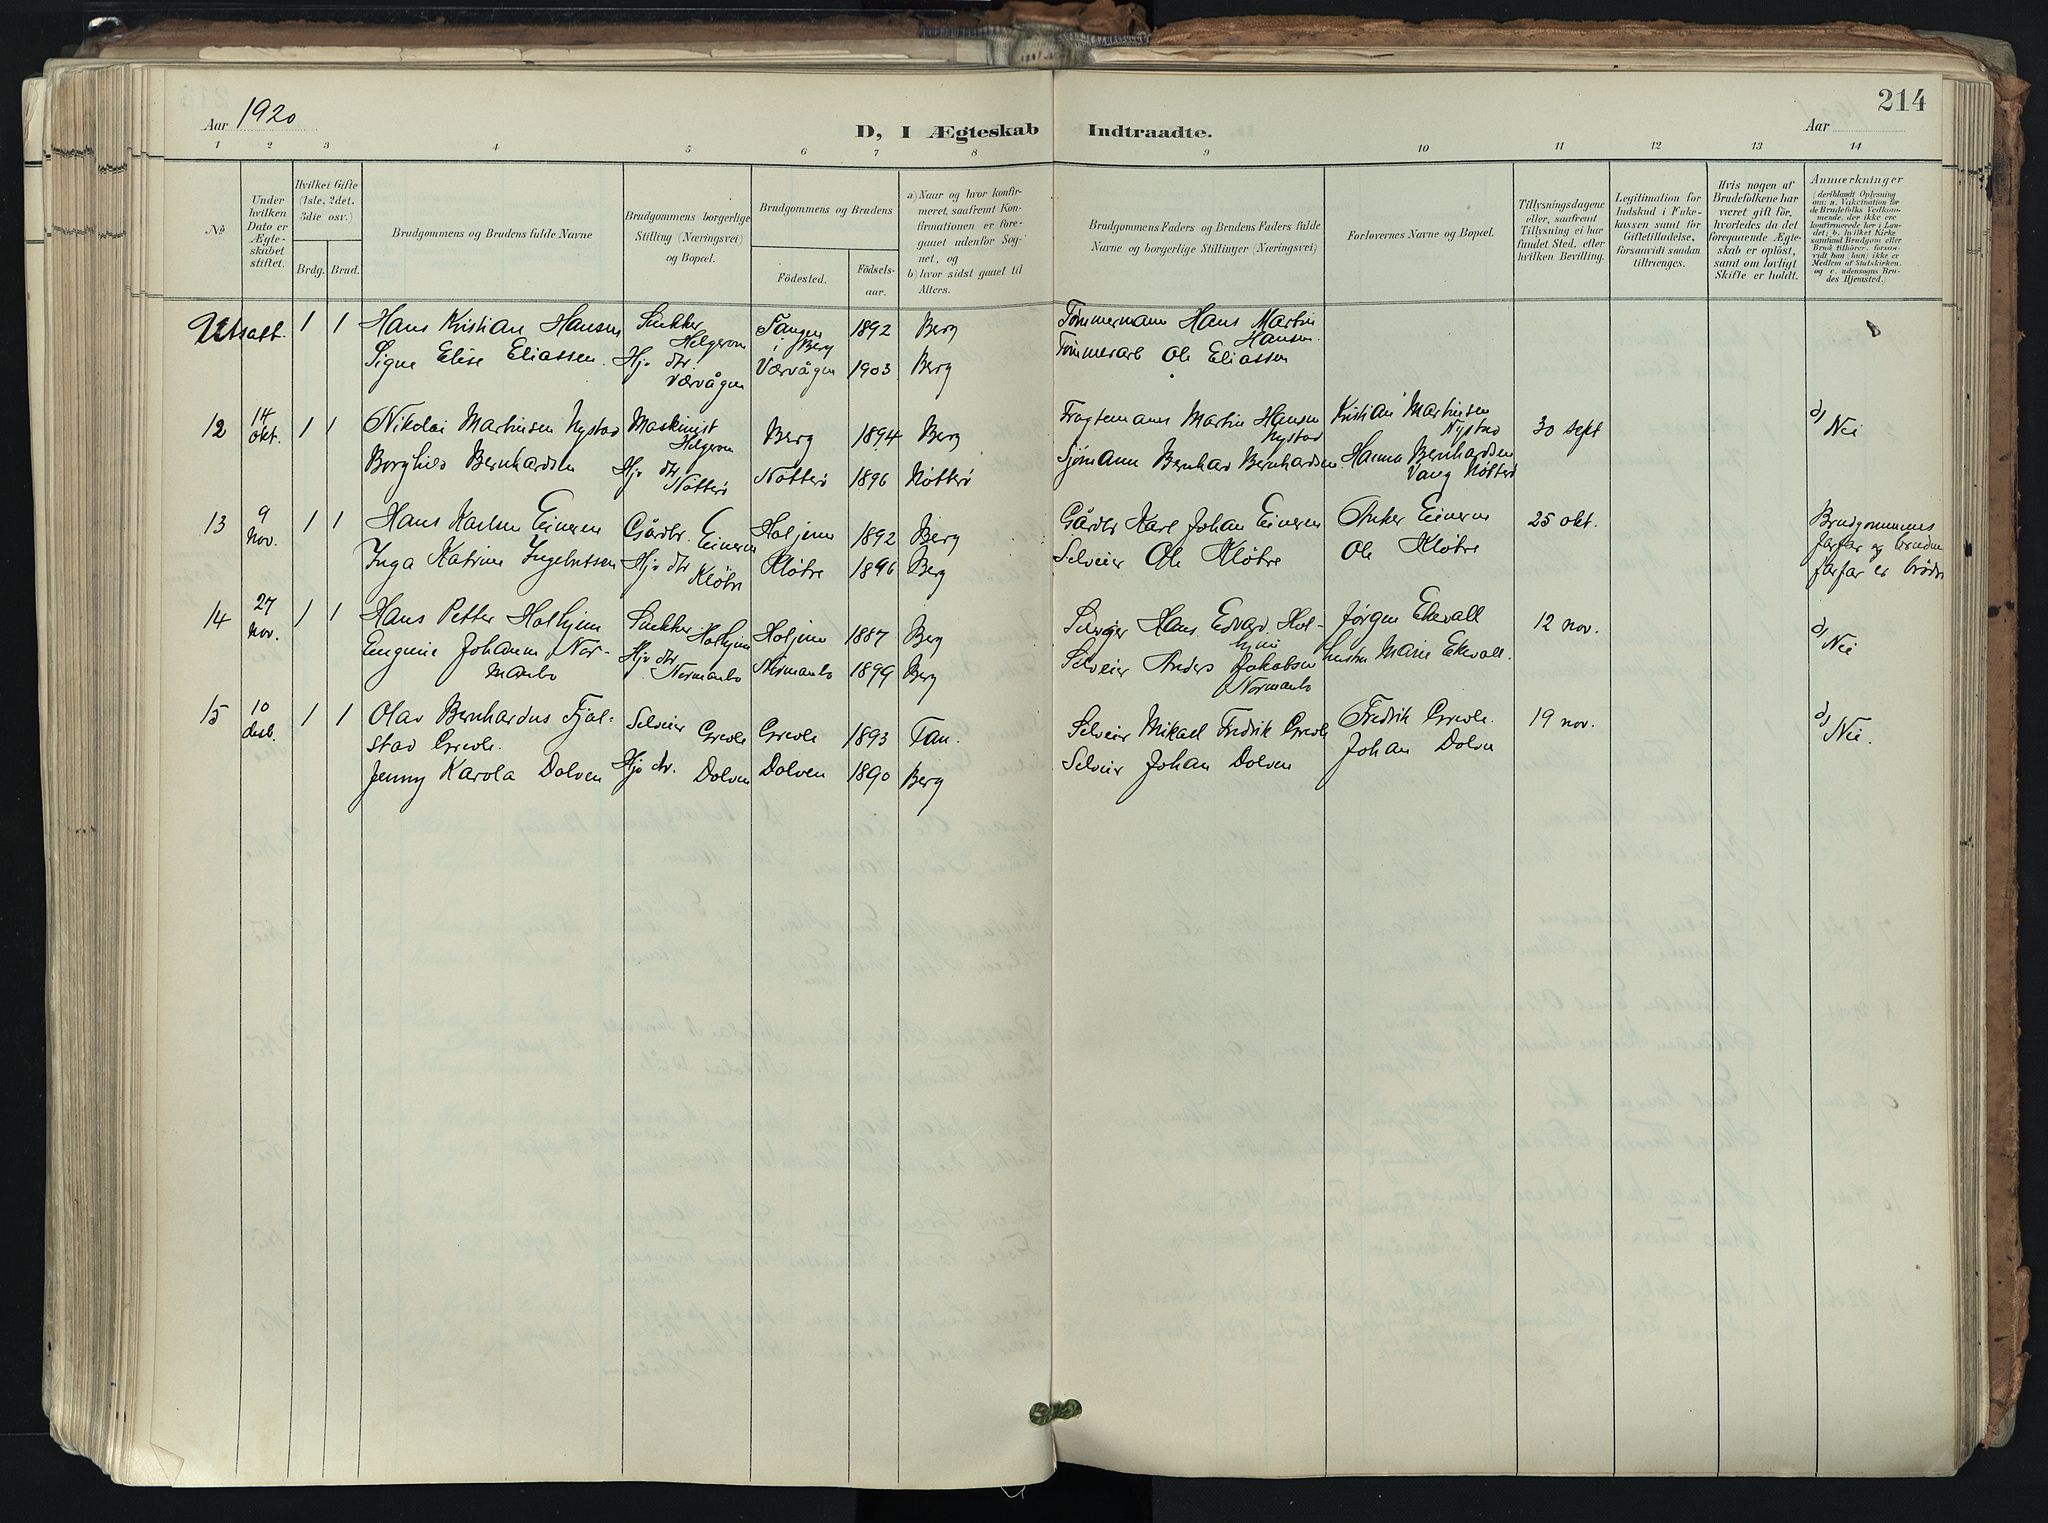 214
Aar 1920
D, I Ægteskab Indtraadte.
Aar
1 2 3 4 5 6 7 8 9 10 11 12 13 14
No
Under hvilken Dato er Ægteskabet stiftet.
Hvilket Gifte (1ste, 2det, 3die osv.)
Brdg. Brud.
Brudgommens og Brudens fulde Navne
Brudgommens borgerlige Stilling (Næringsvei) og Bopæl.
Brudgommens og Brudens
Födested.
Födselsaar.
a) Naar og hvor konfirmeret, saafremt Konfirmationen er foregaaet udenfor Sognet, og
b) hvor sidst gaaet til Alters.
Brudgommens Faders og Brudens Faders fulde Navne og borgerlige Stillinger (Næringsvei)
Forlovernes Navne og Bopæl.
Tillysningsdagene eller, saafremt Tillysning ei har fundet Sted, efter hvilken Bevilling.
Legitimation for Indskud i Enkekassen samt for Giftetilladelse, forsaavidt saadan tiltrænges.
Hvis nogen af Brudefolkene har været gift før, hvorledes da det foregaaende Ægteskab er oplöst, samt om lovligt Skifte er holdt.
Anmærkninger
(deriblandt Oplysning om: a. Vakcination for de Brudefolks Vedkommende, der ikke ere konfirmerede her i Landet; b. hvilket Kirkesamfund Brudgom eller Brud tilhörer, forsaavidt han (hun) ikke er Medlem af Statskirken, og c. udensogns Brudes Hjemsted.)
Utsatt. 1 1 Hans Kristian Hansen Snekker Helgeron Tangen i Berg 1892 Berg Tømmermann Hans Martin Hansen.
Signe Elise Eliassen. Hj. dtr. Værvågen Værvågen 1903 Berg Tømmerarb Ole Eliassen
12 14 okt. 1 1 Nikolai Martinsen Nystad Maskinist Helgeron Berg 1894 Berg Fragtemann Martin Hansen Nystad Kristian Martinsen Nystad 30 sept Nei
Borghild Bernhardsen Hj. dtr Nøtterø Nøtterø 1896 Nøtterø Sjømann Bernhard Bernhardsen. Hanna Bernhardsen Vang Nøtterø
13 9 nov. 1 1 Hans Karlsen Eineren Gårdbr. Eineren Holjem 1892 Berg Gårdbr Karl Johan Eineren Anker Eineren 25 okt. Brudgommens farfar og bruden farfar er brødre
Inga Katrine Ingebretsen Hj. dtr Kløbre Kløtre 1896 Berg Selveier Ole Kløtre Ole Kløtre
14 27 nov. 1 1 Hans Petter Holhjem Snekker Holhjem Holjem 1887 Berg Selveier Hans Edvard Holhjem Jørgen Ekevall 12 nov. Nei
Eugenie Johanne Normanbo Hj. dtr. Normanbo Normanbo 1899 Berg Selveier Anders Jakobsen Normanbo hustru Marie Ekevall.
15 10 desb. 1 1 Olav Bernhardus Fjølstad Grevle. Selveier Grevle Grevle 1893 Tan. Selveier Mikael Fredrik Grevle Fredrik Grevle. 19 nov. Nei.
Jenny Karola Dolven Hj. dtr. Dolven Dolven 1890 Berg Selveier Johan Dolven Johan Dolven